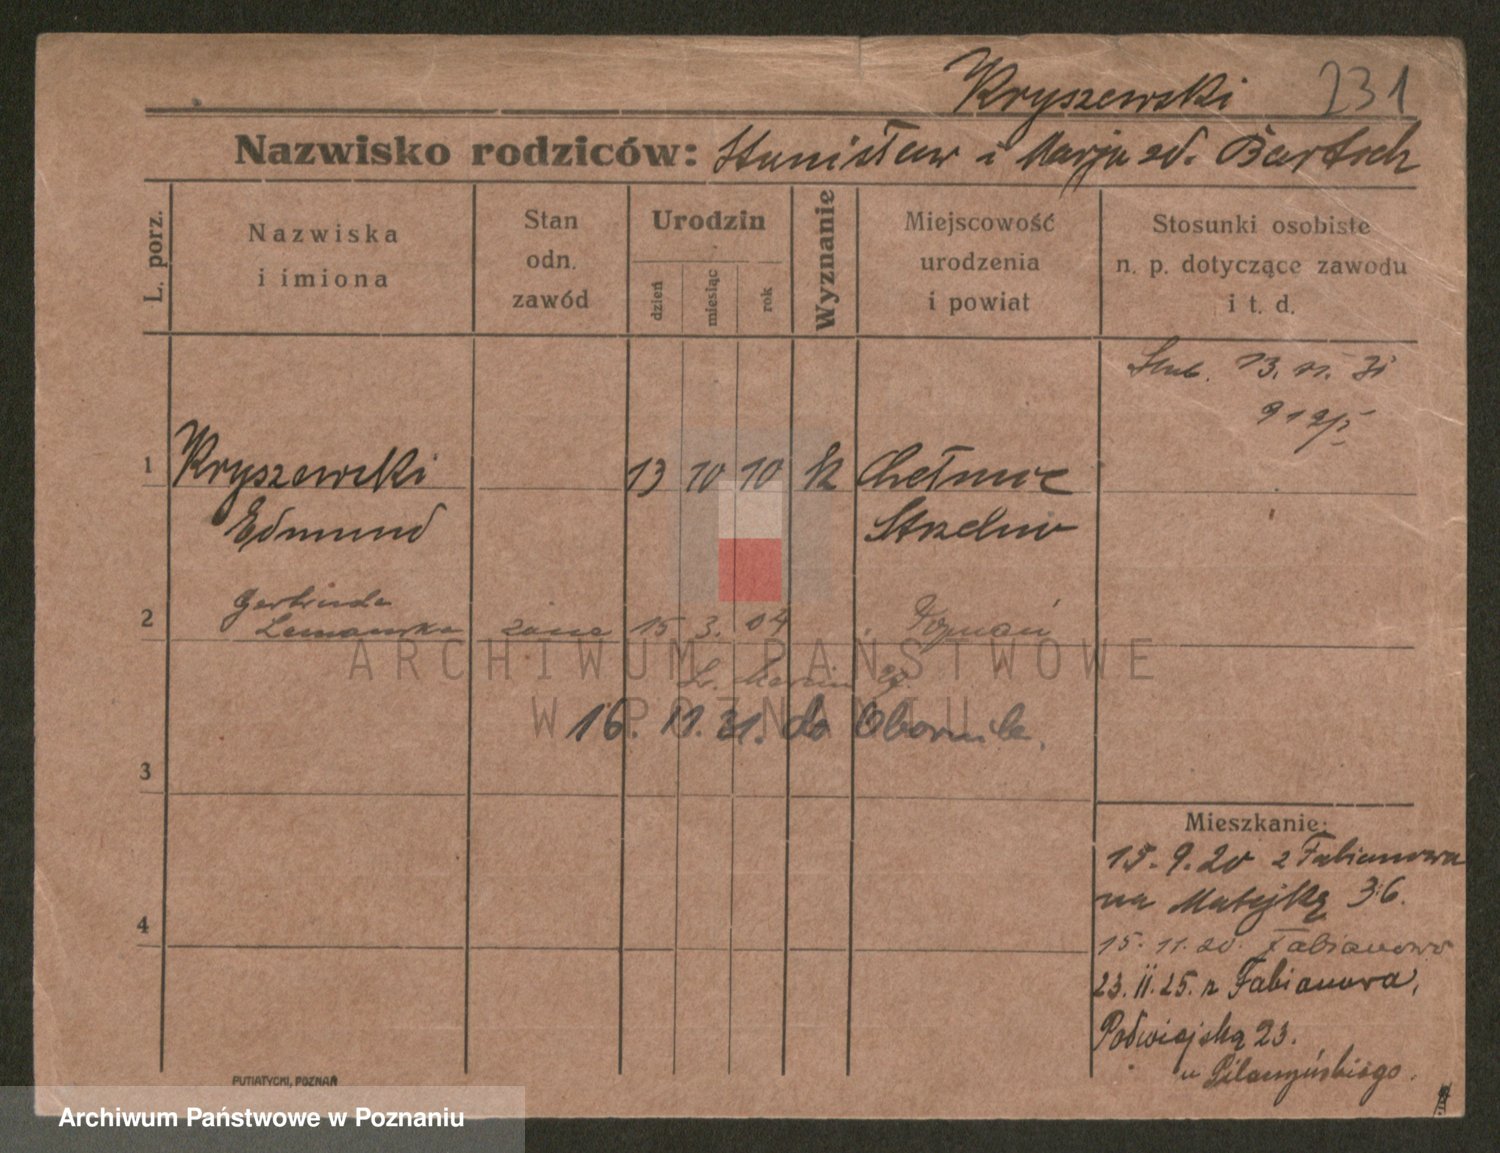 Kryszewski 231
Nazwisko rodziców: Stanisław i Marja zd. Bartsch
L. porz.
Nazwiska
i imiona
Stan
odn.
zawód
Urodzin
dzień
miesiąc
rok
Wyznanie
Miejscowość
urodzenia
i powiat
Stosunki osobiste
n. p. dotyczące zawodu
i t. d.
13. 11. 31
1 Kryszewski 13 10 10 k Chełmce
Edmund Strzelno
Gertruda
2 Lemańska żona 15 3. 04 Poznań
ARCHIWUM PAŃSTWOWE
W POZNANIU
16. 11. 31. do Obornik.
3
4
Mieszkanie:
15. 9. 20 z Fabianowa
na Matejką 36.
15. 11. 20. Fabianowo
23. II. 25. z Fabianowa,
Podwiejską 23.
u
PUTIATYCKI, POZNAŃ
Archiwum Państwowe w Poznaniu